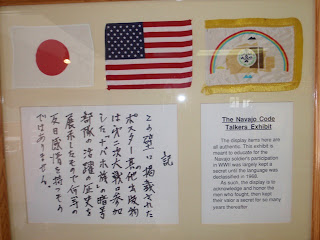 記
この壁に掲載された
ポスター其の他出版物
は第二次大戦に参加
した、ナバホ族の暗号
部隊の活躍の歴史を
展示したもので何等の
反日感情を持つもの
ではありません。
The Navajo Code
Talkers Exhibit
The display items here are
all authentic. This exhibit is
meant to educate for the
Navajo soldier's participation
in WWII was largely kept a
secret until the language was
declassified in 1968.
As such, the display is to
acknowledge and honor the
men who fought, then kept
their valor a secret for so many
years thereafter.